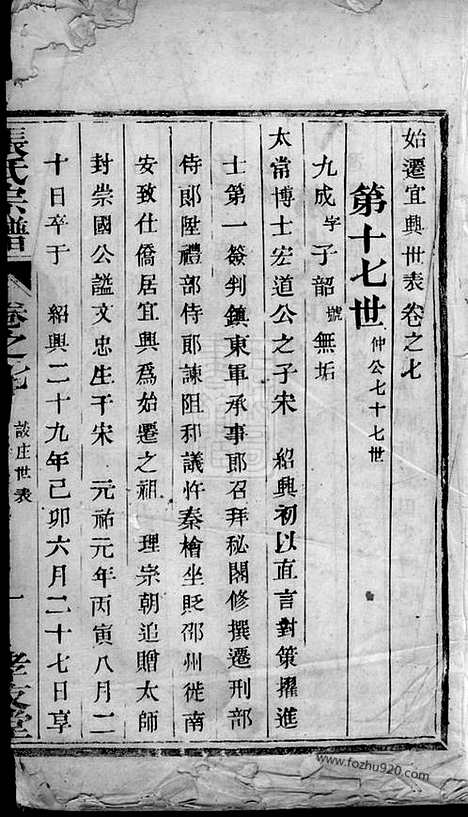 始遷宜興世表卷之七
第十七世仲公七十七世
九成字子韶號無垢
太常博士宏道公之子宋 紹興初以直言對策擢進
士第一簽判鎮東軍承事郎召拜秘閣修撰遷刑部
侍郎陞禮部侍郎諫阻和議忤秦檜坐貶邵州徙南
安致仕僑居宜興為始遷之祖 理宗朝追贈太師
封崇國公謚文忠生于宋 元祐元年丙寅八月二
十日卒于 紹興二十九年己卯六月二十七日享
張氏宗譜 卷之七 談庄世表 一 孝友堂
www.fozhu920.com